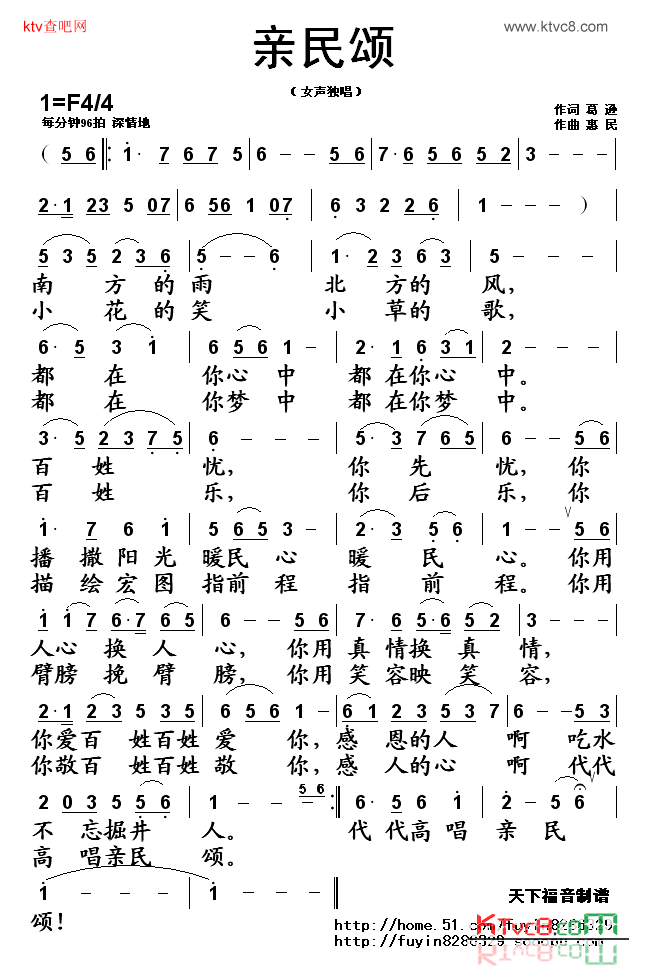 ktv查吧网
www.ktvc8.com
亲民颂
(女声独唱)
1=F4/4
每分钟96拍 深情地
作词 葛 逊
作曲 惠 民
( 5 6 1· 7 6 7 5 6 - - 5 6 7·6 5 6 5 2 3 - - -
2·1 23 5 07 6 56 1 07 6 3 2 2 6 1 - - )
5 3 5 2 3 6 5 - - 6 1· 2 3 6 3 5 - - -
南 方 的 雨 北 方 的 风,
小 花 的 笑 小 草 的 歌,
6· 5 3 1 6 5 6 1 - 2· 1 6 3 1 2 - - -
都 在 你心 中 都 在你心 中。
都 在 你梦 中 都 在你梦 中。
3· 5 2 3 7 5 6 - - - 5· 3 7 6 5 5 - - 5 6
百 姓 忧, 你 先 忧, 你
百 姓 乐, 你 后 乐, 你
1· 7 6 1 5 6 5 3 - 2· 3 5 6 1 - - 5 6
播 撒 阳 光 暖民 心 暖 民 心。 你用
描 绘 宏 图 指前 程 指 前 程。 你用
1 1 7 6·7 6 5 6 - - 5 6 7· 6 5·6 5 2 3 - - -
人心 换 人 心, 你用 真 情换 真 情,
臂膀 挽 臂 膀, 你用 笑 容映 笑 容,
2·1 2 3 5 3 5 6·5 6 - 1·6 1 2 3 5 3 7 6 - - 5 3
你爱百 姓百姓 爱 你, 感 恩的人 啊 吃水
你敬百 姓百姓 敬 你, 感 人的心 啊 代代
2 0 3 5 5 6 1 - - 5 6 6· 5 6 1 2 - 5 6
不 忘掘井 人。 代 代高 唱 亲 民
高 唱亲民 颂。
1 - - - 1 - - -
颂!
天下福音制谱
http://home.51.com/fuyin8280329
KTVC8.com